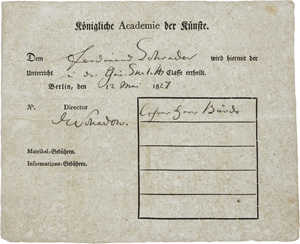 Königliche Academie der Künste.
Dem Ferdinand Schrader wird hiermit der
Unterricht in der Classe ertheilt.
Berlin, den 12 Mai 1827
No. Director
GSchadow.
Matrikel-Gebühren.
Informations-Gebühren.